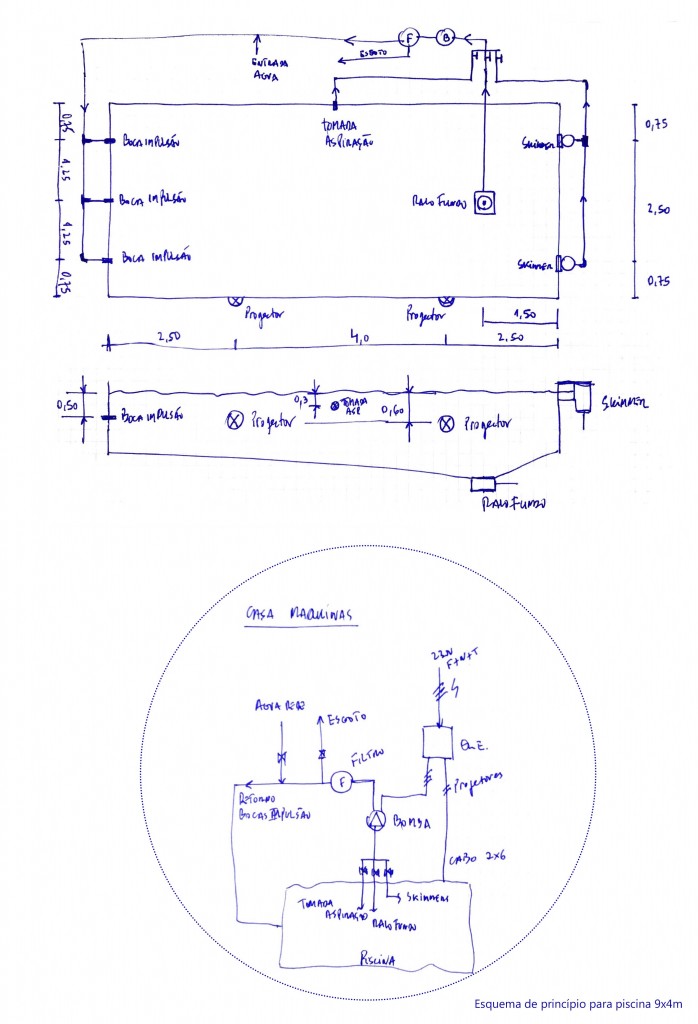 F
B
ESGOTO
ENTRADA
AGUA
TOMADA
ASPIRAÇÃO
0,75
BOCA IMPULSÃO
SKIMMER
0,75
1,25
BOCA IMPULSÃO
RALO FUNDO
2,50
1,25
BOCA IMPULSÃO
SKIMMER
0,75
0,75
Projector
Projector
1,50
2,50
4,0
2,50
0,50
BOCA IMPULSÃO
Projector
0,3
TOMADA
ASP
0,60
Projector
SKIMMER
RALO FUNDO
CASA MAQUINAS
220V
F+N+T
AGUA REDE
ESGOTO
FILTRO
F
Q.E.
Projetores
RETORNO
BOCAS IMPULSÃO
BOMBA
CABO 2x6
TOMADA
ASPIRAÇÃO
SKIMMERS
RALO FUNDO
PISCINA
Esquema de princípio para piscina 9x4m